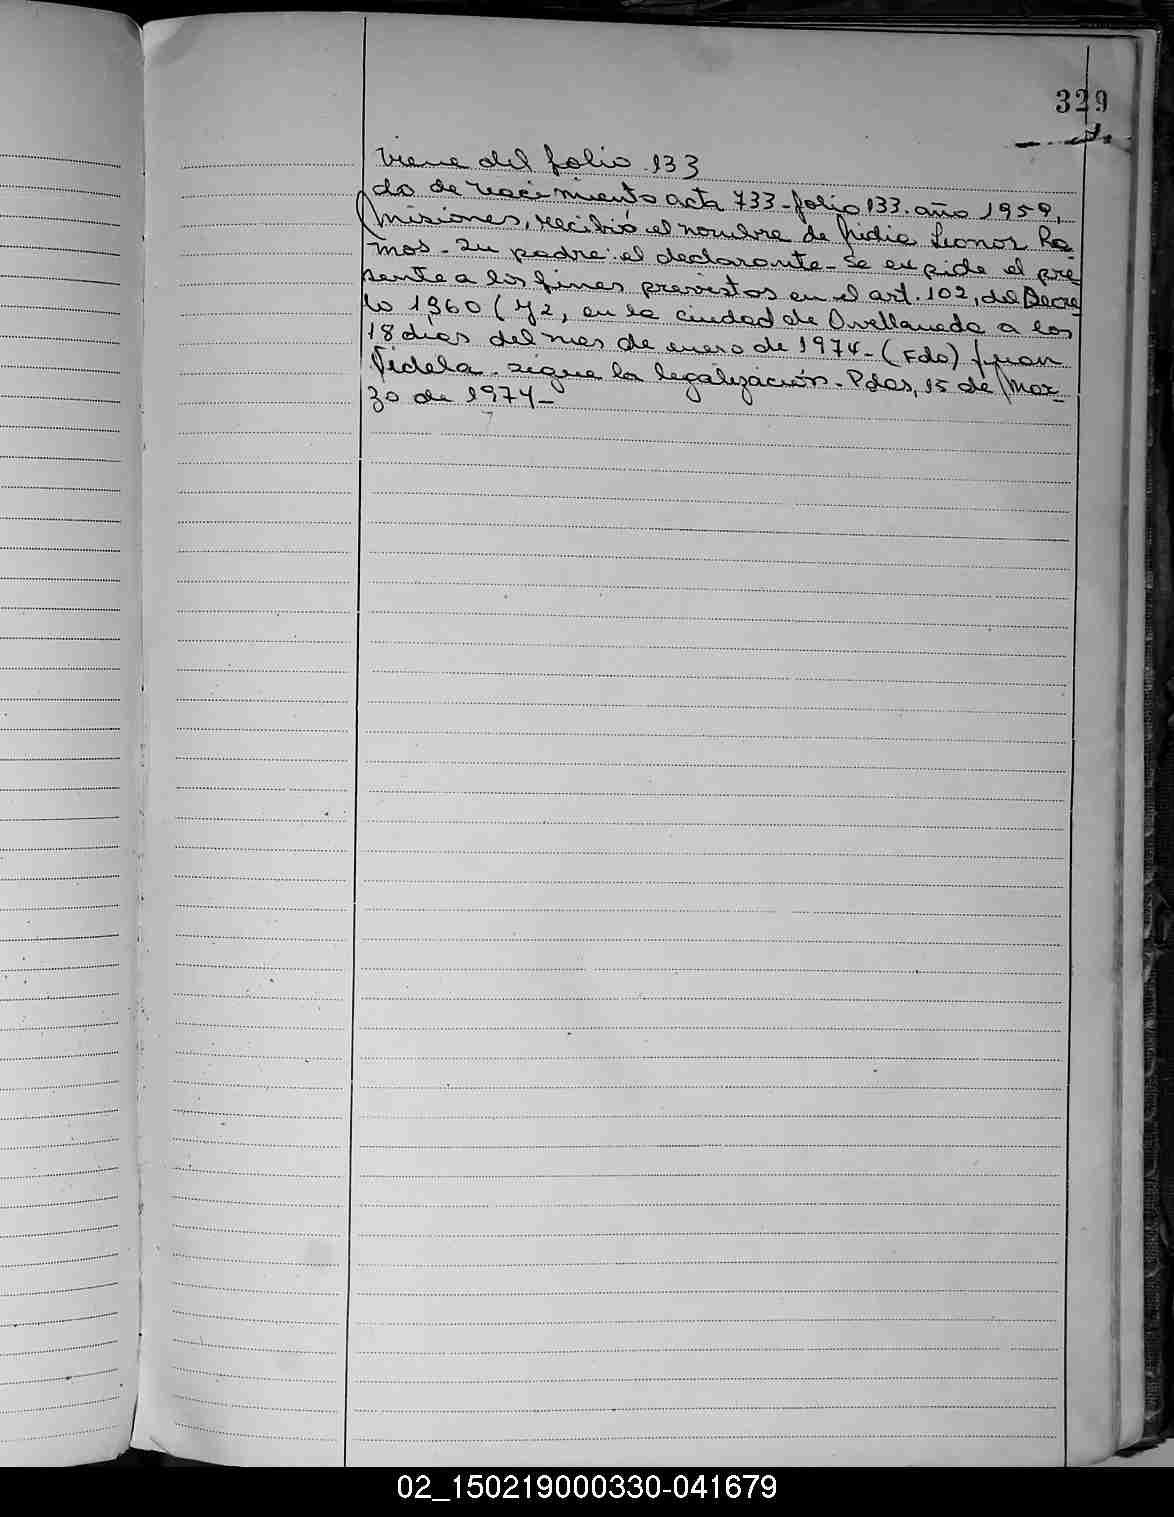 329
viene del folio 133
do de nacimiento acta 733-folio 133. año 1959,
Misiones, recibió el nombre de Lidia Leonor Ra-
mos - Su padre: el declarante - Se expide el pre
sente a los fines previstos en el art. 102, del Decre-
to 1,960 (72, en la ciudad de Avellaneda a los
18 días del mes de enero de 1974 - (Fdo) Juan
Videla. sigue la legalización - Pdas, 15 de Mar-
zo de 1974 -
02_150219000330-041679